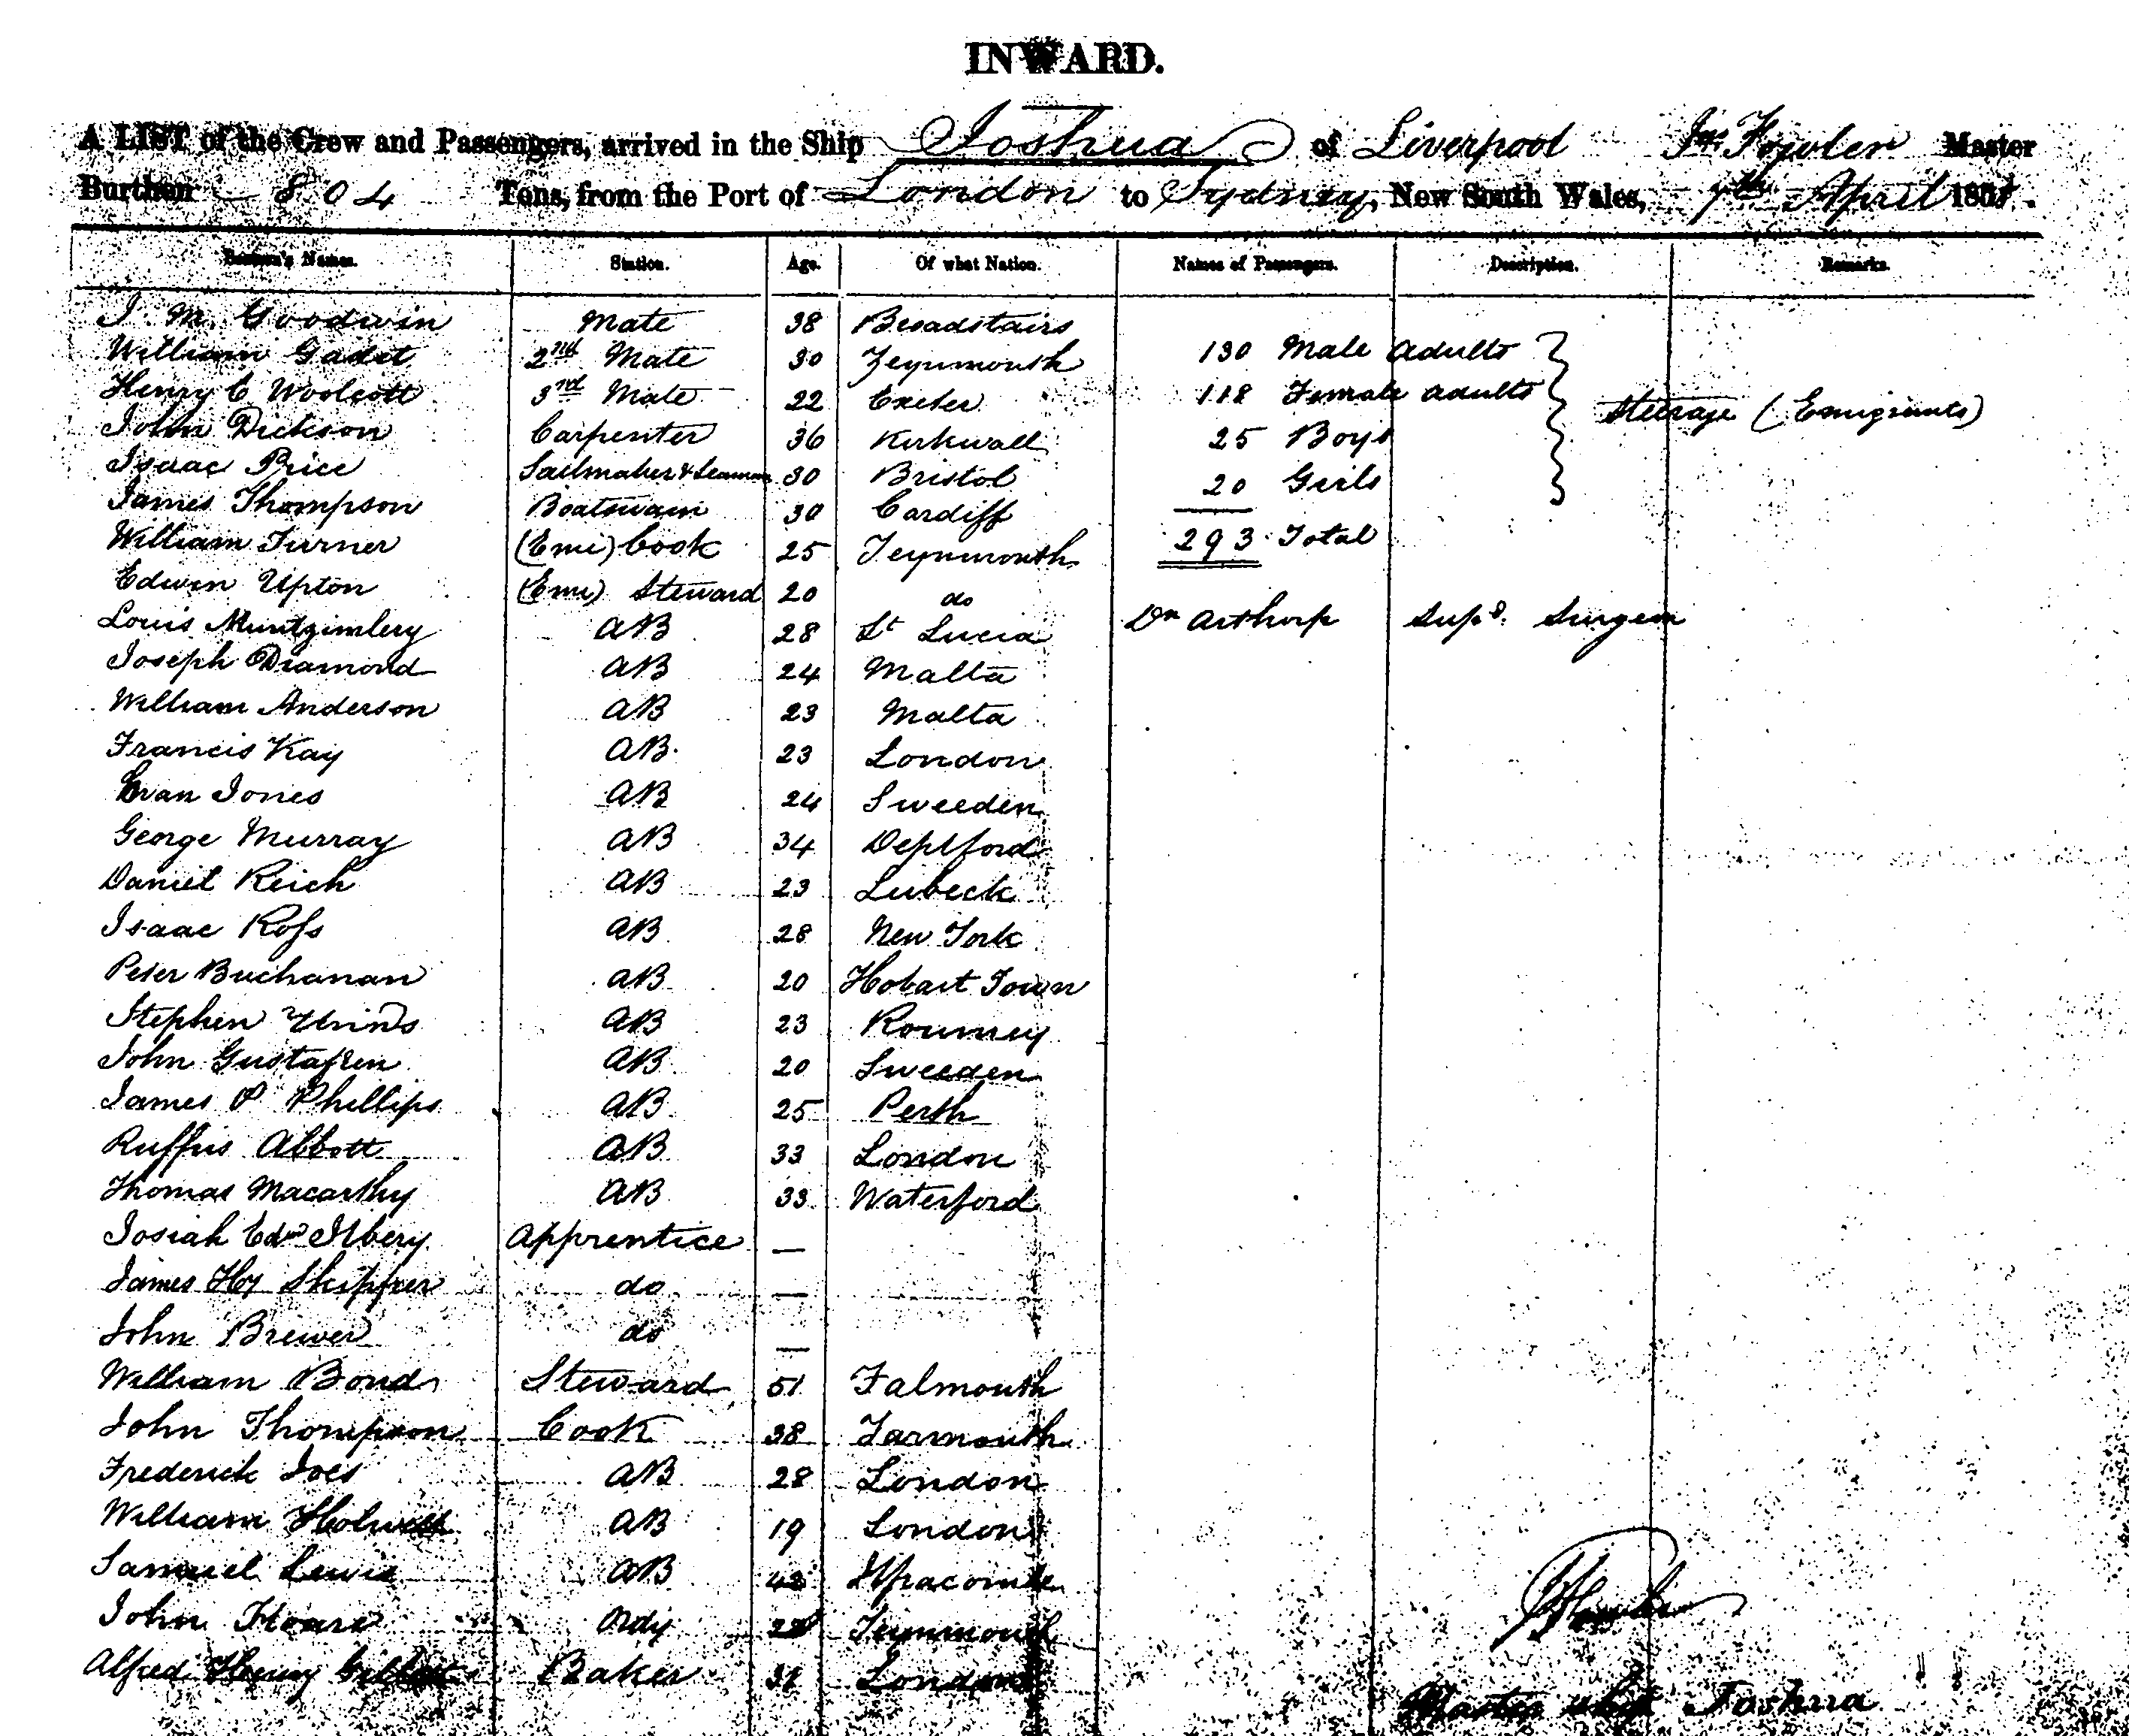 INWARD.
A LIST of the Crew and Passengers, arrived in the Ship Joshua of Liverpool Jas Fowler Master
Burthen 804 Tons, from the Port of London to Sydney, New South Wales, 7th April 185
Seamen's Names. Station. Age. Of what Nation. Names of Passengers. Description. Remarks.
J. M. Goodwin Mate 38 Broadstairs
William Gadet 2nd Mate 30 Teynmouth 130 Male adults
Henry C Woolcott 3rd Mate 22 Exeter 118 Female adults Steerage (Emigrants)
John Dickson Carpenter 36 Kirkwall 25 Boys
Isaac Price Sailmaker & Seaman 30 Bristol 20 Girls
James Thompson Boatswain 30 Cardiff
William Turner (Emi) Cook 25 Teynmouth 293 Total
Edwin Upton (Emi) Steward 20 do
Louis Muntzimlery AB 28 St Lucia Dr Arthorp Supd. Surgeon
Joseph Diamond AB 24 Malta
William Anderson AB 23 Malta
Francis Kay AB. 23 London
Evan Jones AB 24 Sweeden
George Murray AB 34 Deptford
Daniel Reich AB 23 Lubeck
Isaac Ross AB 28 New York
Peter Buchanan AB 20 Hobart Town
Stephen AB 23 Roumey
John Gustafsen AB 20 Sweeden
James P Phillips AB 25 Perth
Ruffus Abbott AB 33 London
Thomas Macarthy AB 33 Waterford
Josiah Edwd Ilbery Apprentice —
James Hy Skipper do —
John Brewer do —
William Bond Steward 51 Falmouth
John Thompson Cook 38 Yarmouth
Frederick Joes AB 28 London
William AB 19 London
Samuel Lewis AB 42 Ilfracombe
John Hoare Ordy Teynmouth
Alfred Henry Baker 31 London
Master ship Joshua